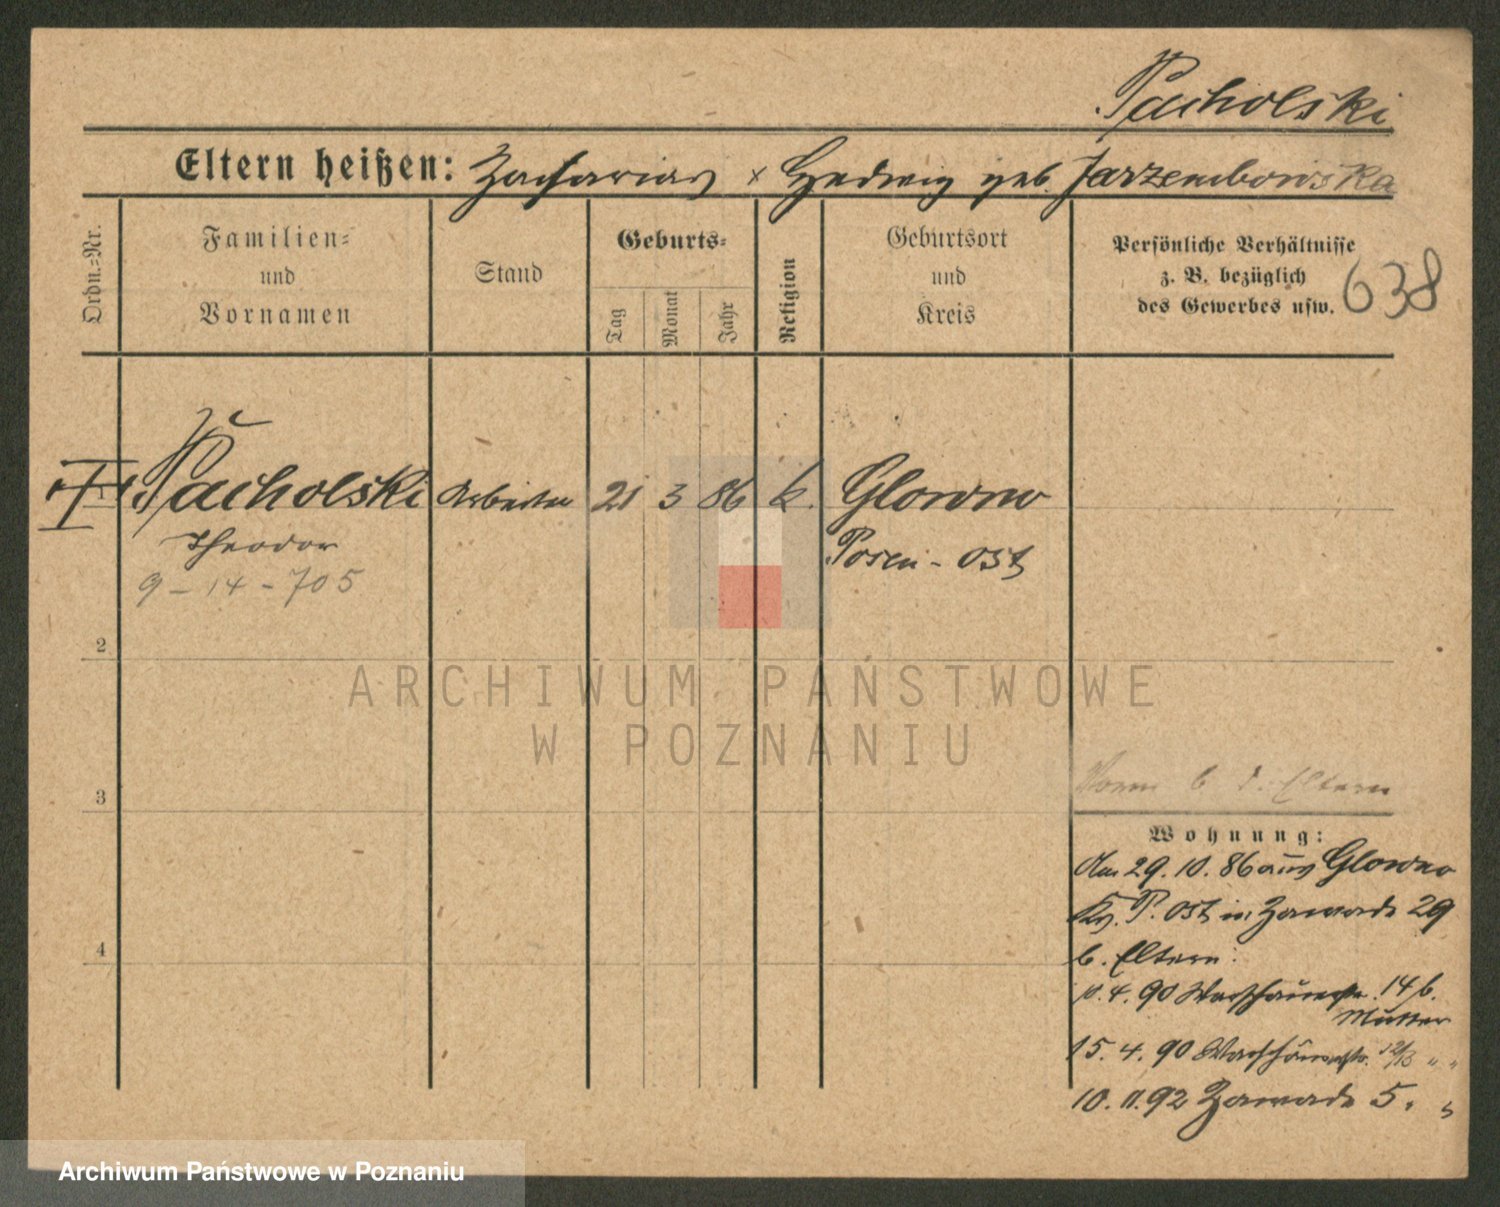 Pacholski
Eltern heißen: Zacharias x Hedwig geb. Jarzembowska
Ordn.-Nr.
Familien-
und
Vornamen
Stand
Geburts-
Tag
Monat
Jahr
Religion
Geburtsort
und
Kreis
Persönliche Verhältnisse
z. B. bezüglich
des Gewerbes usw.
638
I Pacholski Arbeiter 21 3 86 k. Glowno
Theodor Posen-Ost
9-14-705
2
3
4
b. d. Eltern
Wohnung:
Am 29. 10. 86 aus Glowno
Kr. P. Ost in Zawade 29
b. Eltern.
11. 4. 90 14 b.
Mutter
15. 4. 90 12/13 " "
10. 11. 92 Zawade 5. "
ARCHIWUM PAŃSTWOWE
W POZNANIU
Archiwum Państwowe w Poznaniu